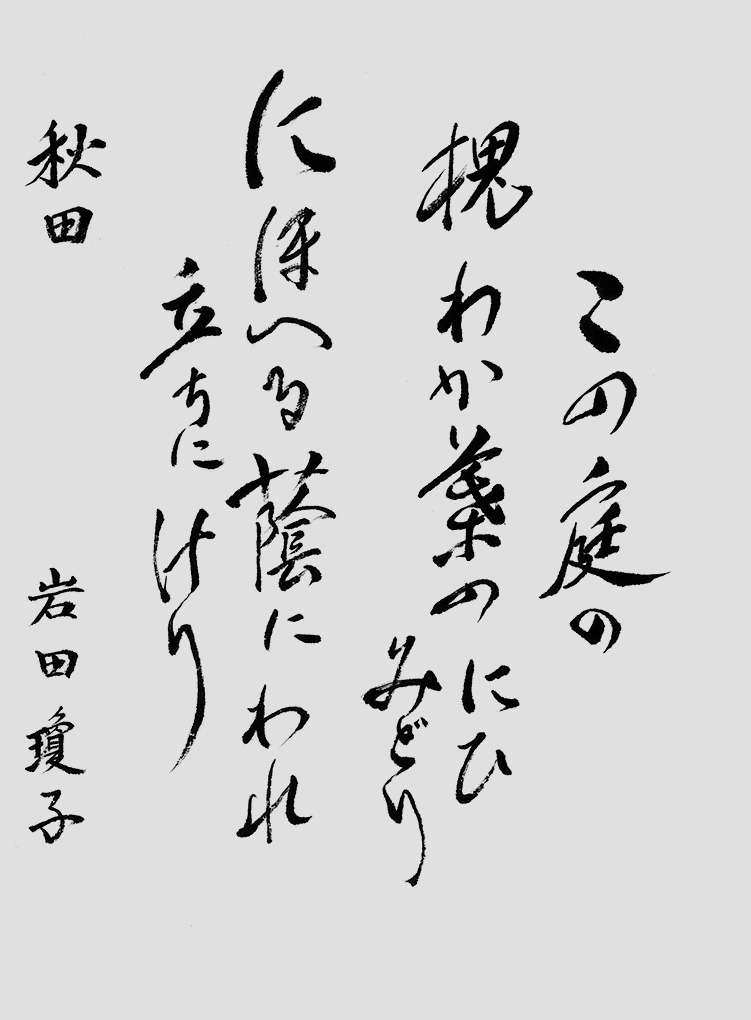 この庭の
槐わか葉のにひ
みどり
にほへる蔭にわれ
立ちにけり
秋田 岩田瓊子